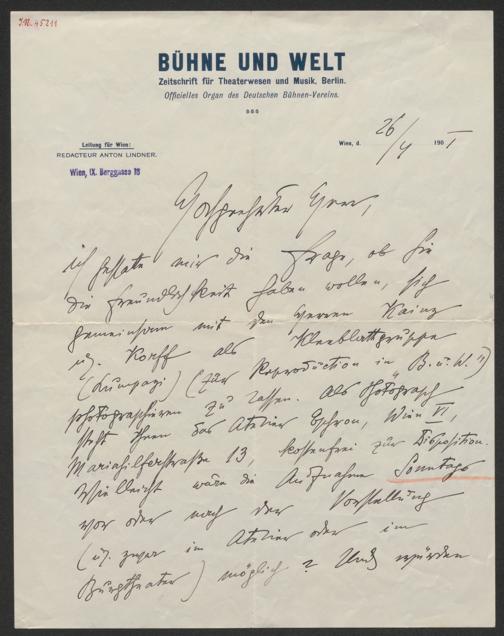 J.N. 45211
BÜHNE UND WELT
Zeitschrift für Theaterwesen und Musik, Berlin.
Officielles Organ des Deutschen Bühnen-Vereins.
Leitung für Wien:
REDACTEUR ANTON LINDNER.
Wien, IX. Berggasse
Wien, d. 26/ 190
Hochgeehrter Herr,
ich gestatte mir die Frage, ob Sie
die Freundlichkeit haben wollen, sich
gemeinsam mit den Herren Kainz
u. Korff als Kleeblattgruppe
(Lumpazi) (zur Reproduction in „B. u. W.")
photographieren zu lassen. Als Photograph
steht Ihnen das Atelier, Wien VI,
Mariahilferstraße 13, kostenfrei zur Disposition.
Vielleicht wäre die Aufnahme Sonntags
vor oder nach der Vorstellung
(u. zwar im Atelier oder im
Burgtheater) möglich? Und würden